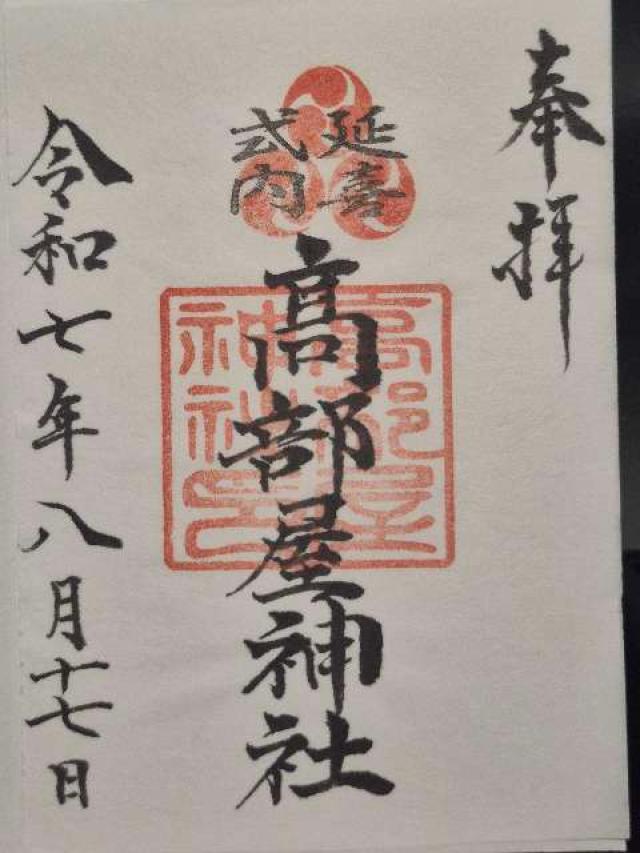 奉拝
延喜
式内
高部屋神社
高部屋
神社印
令和七年八月十七日